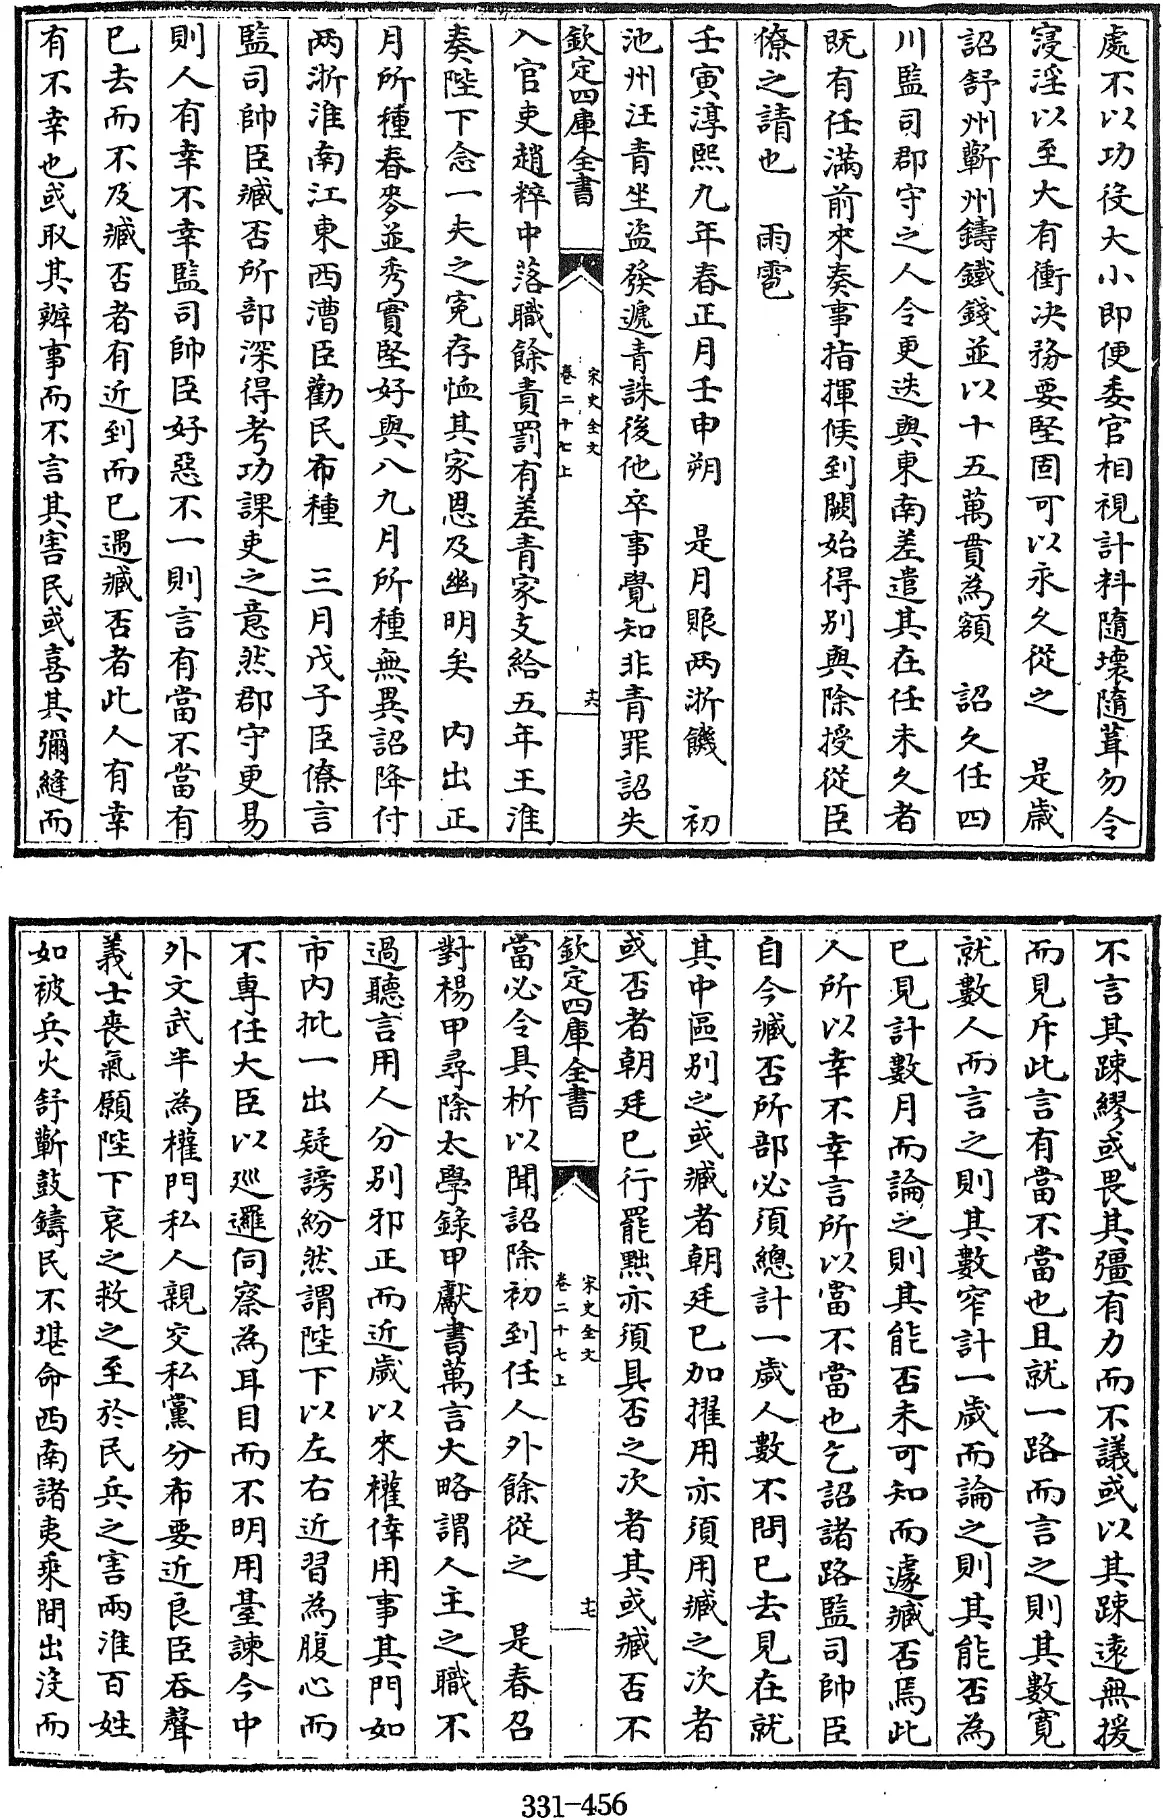 處不以功役大小即便委官相視計料隨壞隨葺勿令
寖淫以至大有衝決務要堅固可以永久從之　是歲
詔舒州蘄州鑄鐵錢並以十五萬貫為額　詔久任四
川監司郡守之人令更迭與東南差遣其在任未久者
既有任滿前來奏事指揮候到闕始得別與除授從臣
僚之請也　雨雹
壬寅淳熙九年春正月壬申朔　是月賑兩浙饑　初
池州汪青坐盜發遞青誅後他卒事覺知非青罪詔失
欽定四庫全書
宋史全文
卷二十七上
十六
入官吏趙粹中落職餘責罰有差青家支給五年王淮
奏陛下念一夫之寃存恤其家恩及幽明矣　内出正
月所種春麥並秀實堅好與八九月所種無異詔降付
兩浙淮南江東西漕臣勸民布種　三月戊子臣僚言
監司帥臣臧否所部深得考功課吏之意然郡守更易
則人有幸不幸監司帥臣好惡不一則言有當不當有
已去而不及臧否者有近到而已遇臧否者此人有幸
有不幸也或取其辦事而不言其害民或喜其彌縫而
不言其踈繆或畏其彊有力而不議或以其踈遠無援
而見斥此言有當不當也且就一路而言之則其數寛
就數人而言之則其數窄計一歲而論之則其能否為
已見計數月而論之則其能否未可知而遽臧否焉此
人所以幸不幸言所以當不當也乞詔諸路監司帥臣
自今臧否所部必須總計一歲人數不問已去見在就
其中區別之或臧者朝廷已加擢用亦須用臧之次者
或否者朝廷已行罷黜亦須具否之次者其或臧否不
欽定四庫全書
宋史全文
卷二十七上
十七
當必令具析以聞詔除初到任人外餘從之　是春召
對楊甲尋除太學錄甲獻書萬言大略謂人主之職不
過聽言用人分別邪正而近歲以來權倖用事其門如
市内批一出疑謗紛然謂陛下以左右近習為腹心而
不專任大臣以廵邏伺察為耳目而不明用臺諫今中
外文武半為權門私人親交私黨分布要近良臣吞聲
義士喪氣願陛下哀之救之至於民兵之害兩淮百姓
如被兵火舒蘄鼓鑄民不堪命西南諸夷乘間出沒而
331-456